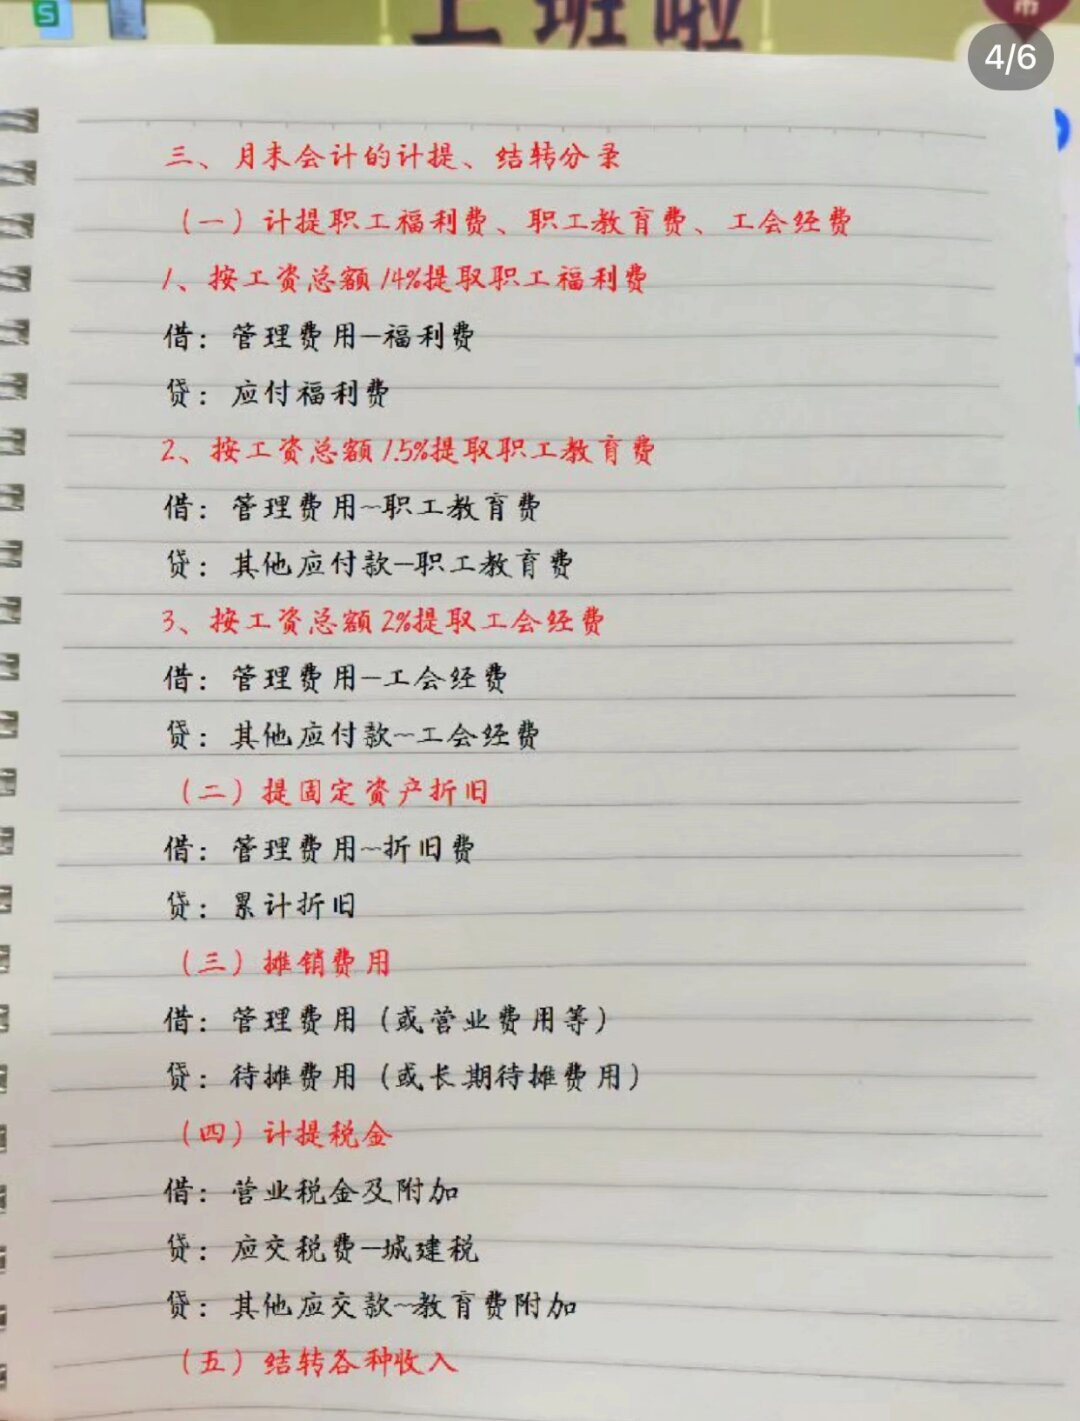 上班啦
市
4/6
三、月末会计的计提、结转分录
（一）计提职工福利费、职工教育费、工会经费
1、按工资总额14%提取职工福利费
借：管理费用—福利费
贷：应付福利费
2、按工资总额1.5%提取职工教育费
借：管理费用—职工教育费
贷：其他应付款—职工教育费
3、按工资总额2%提取工会经费
借：管理费用—工会经费
贷：其他应付款—工会经费
（二）提固定资产折旧
借：管理费用—折旧费
贷：累计折旧
（三）摊销费用
借：管理费用（或营业费用等）
贷：待摊费用（或长期待摊费用）
（四）计提税金
借：营业税金及附加
贷：应交税费—城建税
贷：其他应交款—教育费附加
（五）结转各种收入